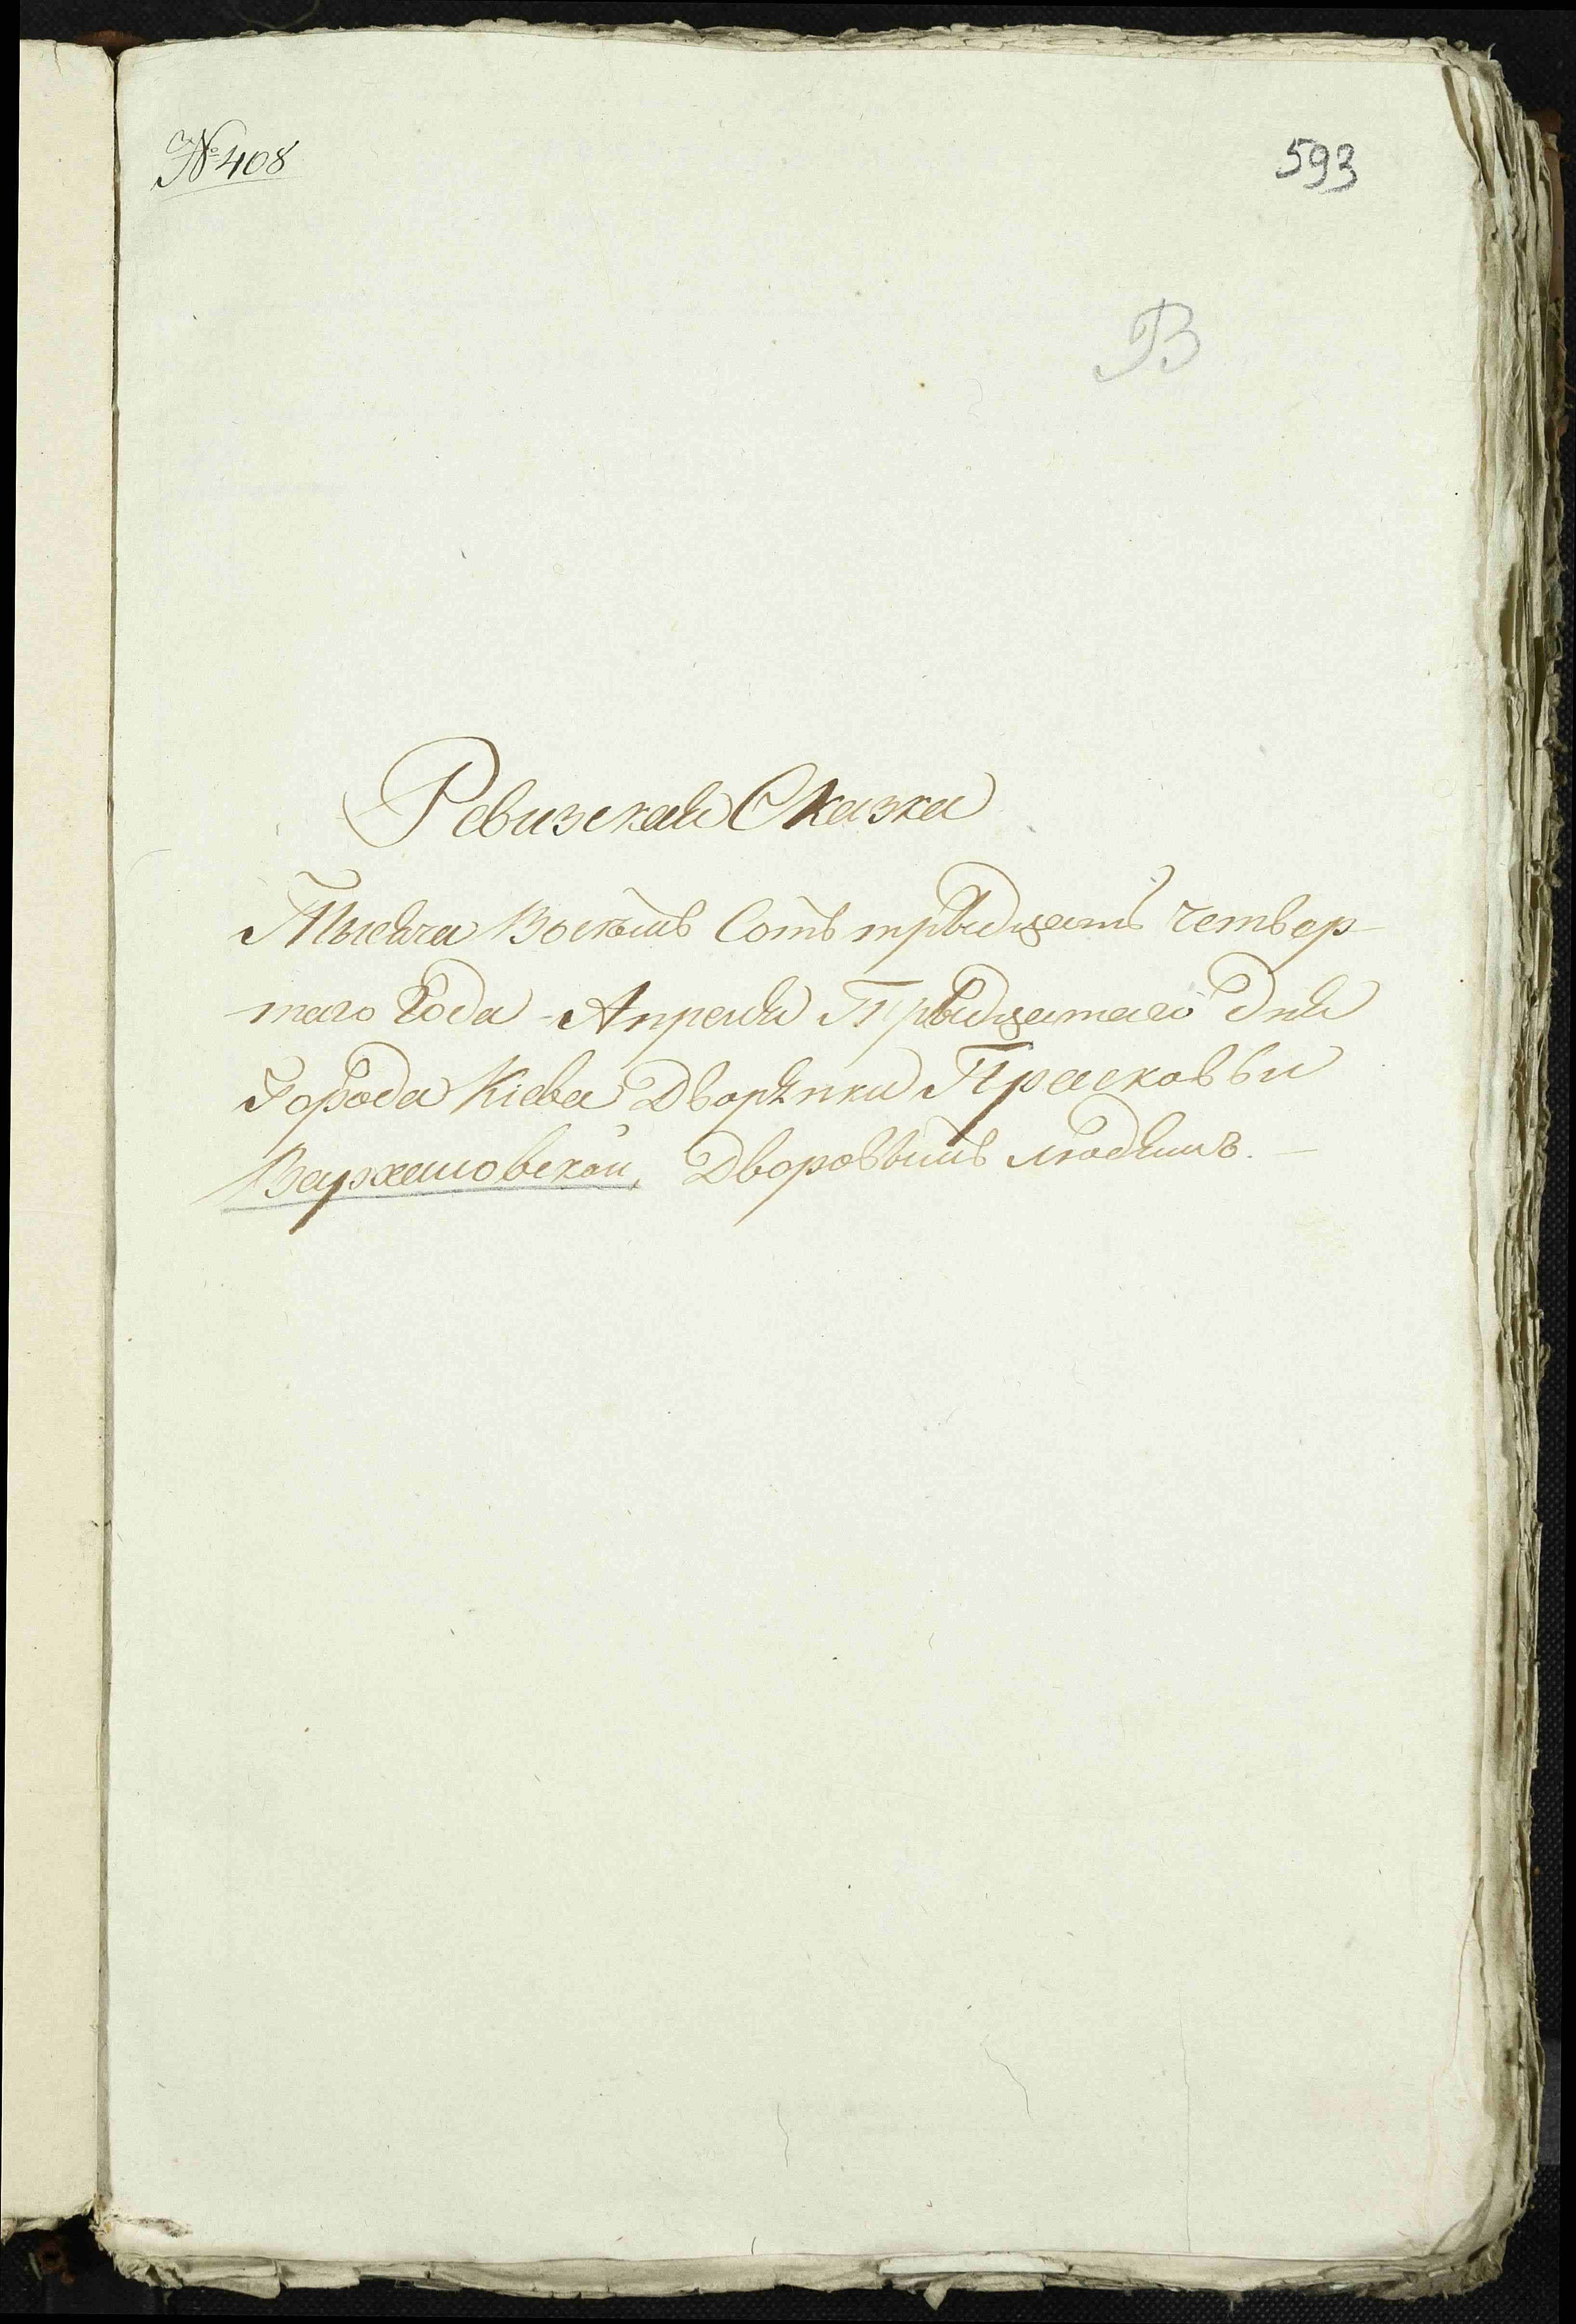 № 408
593
В
Ревизская Сказка
Тысяча Восемъ Сотъ трыдцать четвер-
таго Года Апреля Трыдцатаго Дня
Города Кіева Дворянки Прасковьи
Вархамовской, Дворовымъ людямъ.